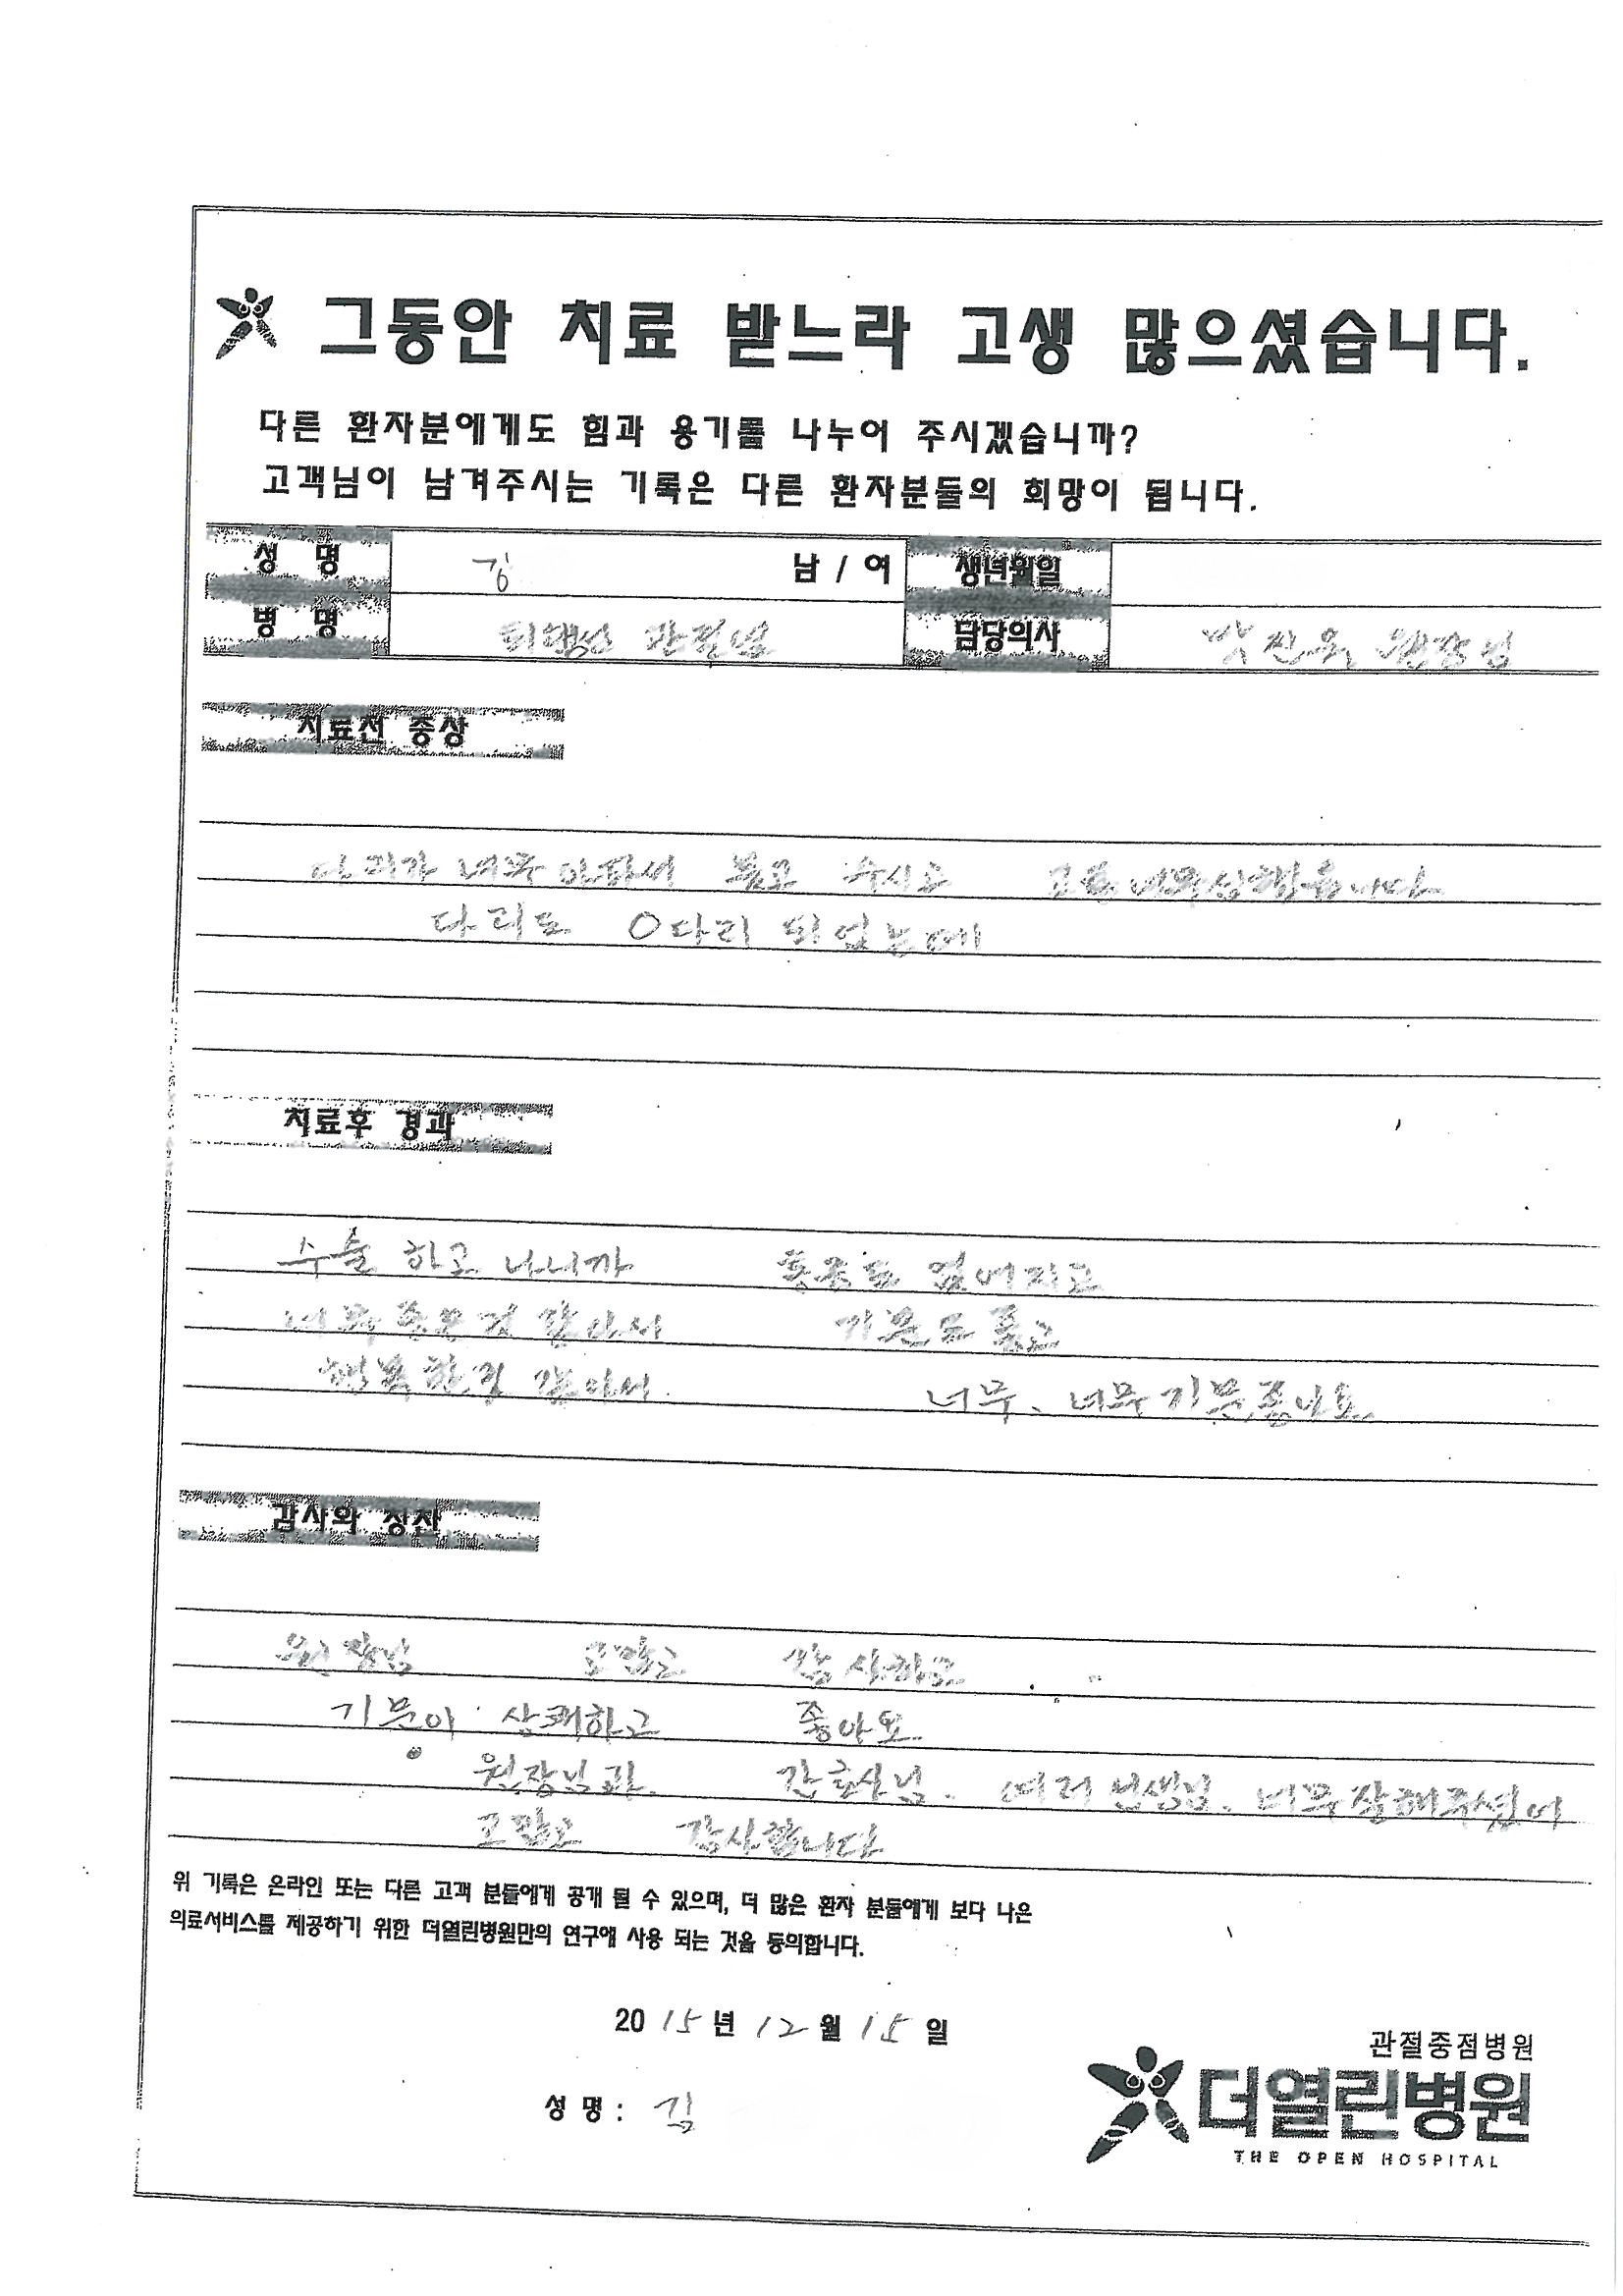 그동안 치료 받느라 고생 많으셨습니다.
다른 환자분에게도 힘과 용기를 나누어 주시겠습니까?
고객님이 남겨주시는 기록은 다른 환자분들의 희망이 됩니다.
성 명 김 남 / 여 생년월일
병 명 퇴행성 관절염 담당의사 원장님
치료전 증상
다리가 너무 아파서 붓고 수시고
다리도 O다리 되었는데
치료후 경과
수술 하고 나니까 통증도 없어지고
너무 좋은것 같아서 기분도 좋고
행복한것 같아서. 너무. 너무 기분좋아요.
감사와 칭찬
원장님 고맙고 감사하고
기분이 상쾌하고 좋아요.
원장님과. 간호사님. 여러 선생님. 너무 잘해주셨어
고맙고 감사합니다
위 기록은 온라인 또는 다른 고객 분들에게 공개 될 수 있으며, 더 많은 환자 분들에게 보다 나은
의료서비스를 제공하기 위한 더열린병원만의 연구에 사용 되는 것을 동의합니다.
2015년 12월 15일
관절중점병원
성 명 : 김
더열린병원
THE OPEN HOSPITAL